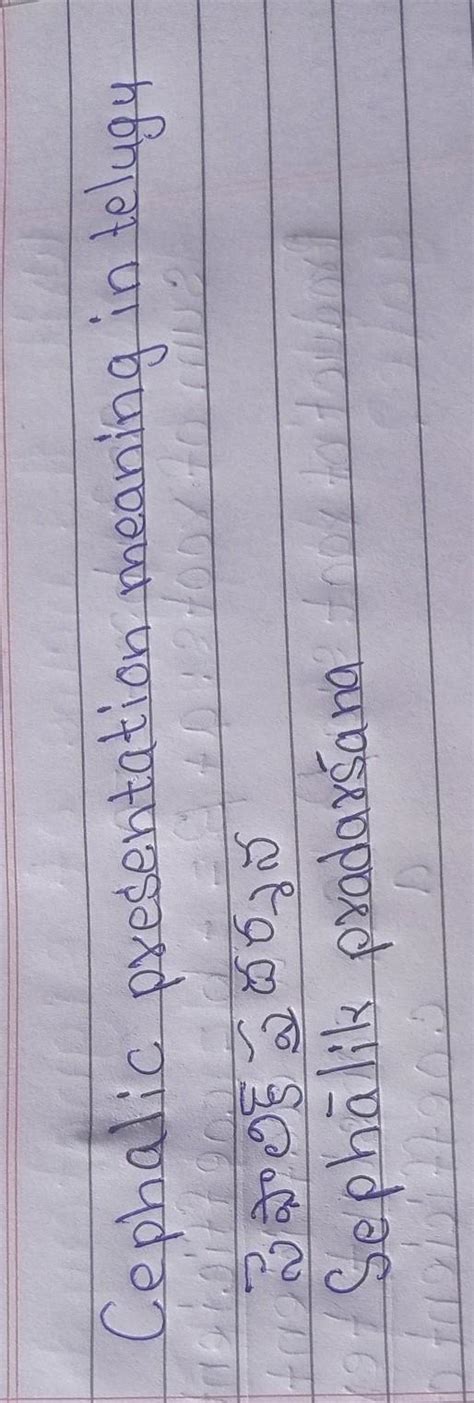 Cephalic presentation meaning in telugu
సెఫాలిక్ ప్రదర్శన
Sephālik pradarśana